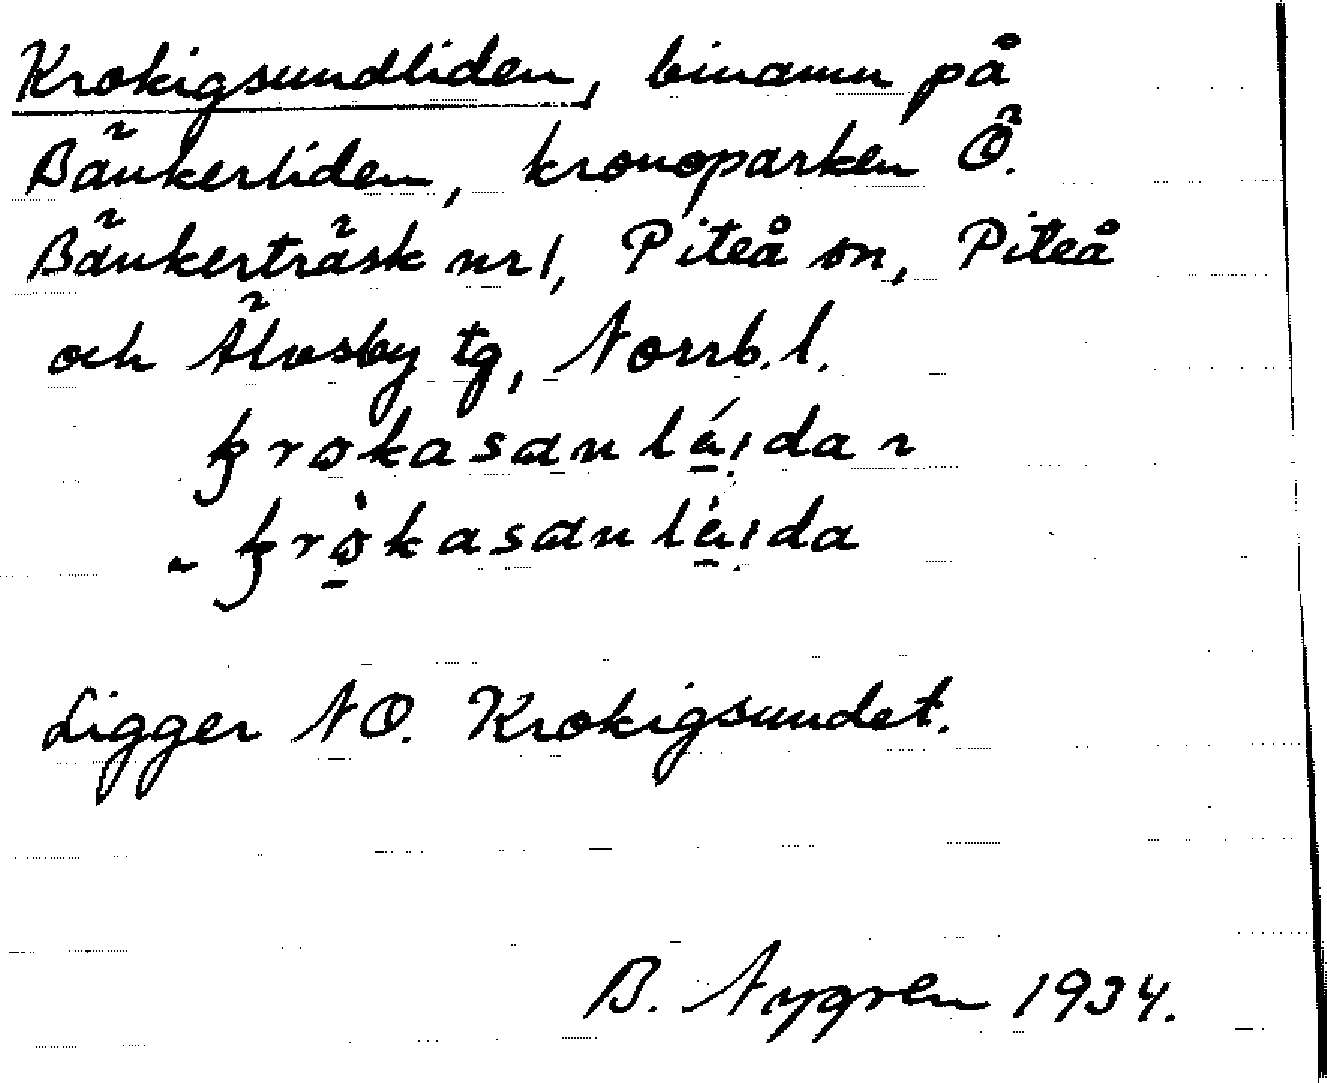 Krokigsundliden, binamn på
Bänkerliden, kronoparken Ö.
Bänkerträsk nr 1, Piteå sn, Piteå
och Älvsby tg, Norrb. l.
Ligger NO. Krokigsundet.
B. Nygren 1934.